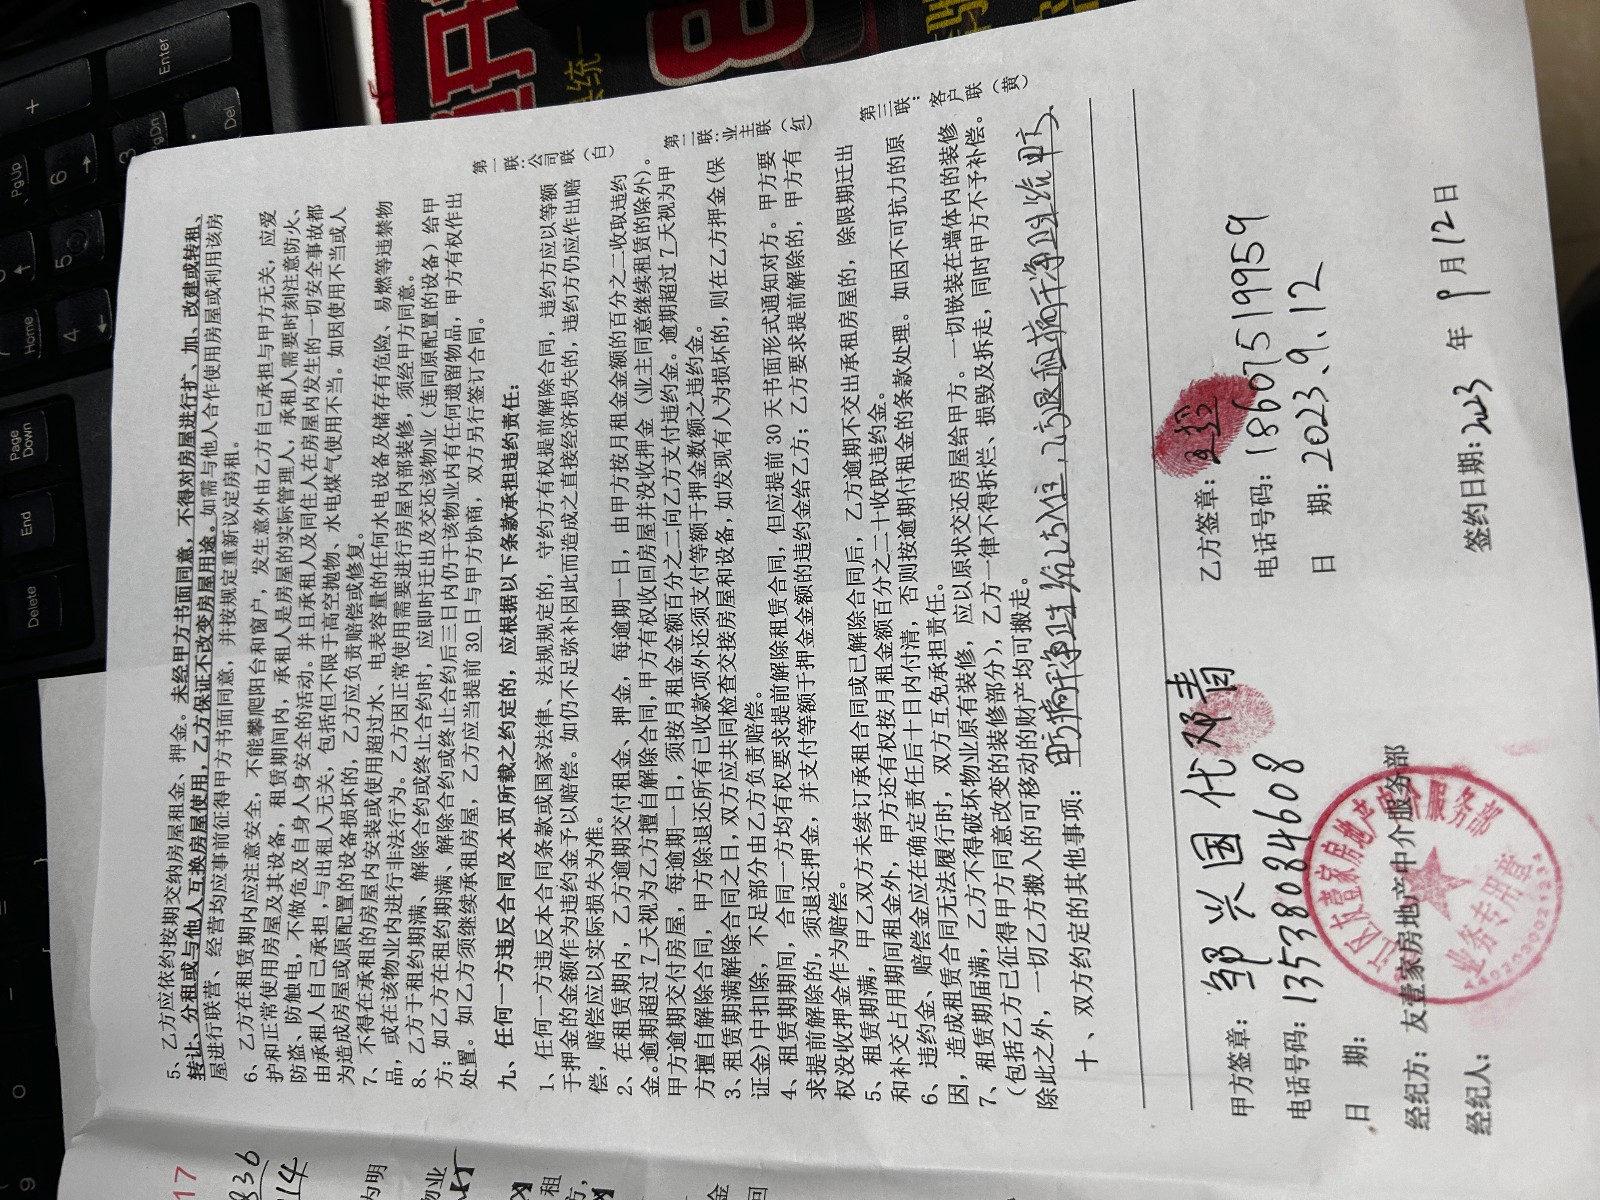 5、乙方应依约按期交纳房屋租金、押金。未经甲方书面同意，不得对房屋进行扩、加、改建或转租、
转让、分租或与他人互换房屋使用，乙方保证不改变房屋用途。如需与他人合作使用房屋或利用该房
屋进行联营、经营均应事前征得甲方书面同意，并按规定重新议定房租。
6、乙方在租赁期内应注意安全，不能攀爬阳台和窗户，发生意外由乙方自己承担与甲方无关，应爱
护和正常使用房屋及其设备，租赁期间内，承租人是房屋的实际管理人，承租人需要时刻注意防火、
防盗、防触电，不做危及自身人身安全的活动。并且承租人及同住人在房屋内发生的一切安全事故都
由承租人自己承担，与出租人无关，包括但不限于高空抛物、水电煤气使用不当。如因使用不当或人
为造成房屋或原配置的设备损坏的，乙方应负责赔偿或修复。
7、不得在承租的房屋内安装或使用超过水、电表容量的任何水电设备及储存有危险、易燃等违禁物
品，或在该物业内进行非法行为。乙方因正常使用需要进行房屋内部装修，须经甲方同意。
8、乙方于租约期满、解除合约或终止合约时，应即时迁出及交还该物业（连同原配置的设备）给甲
方；如乙方在租约期满、解除合约或终止合约后三日内仍于该物业内有任何遗留物品，甲方有权作出
处置。如乙方须继续承租房屋，乙方应当提前30日与甲方协商，双方另行签订合同。
九、任何一方违反合同及本页所载之约定的，应根据以下条款承担违约责任：
1、任何一方违反本合同条款或国家法律、法规规定的，守约方有权提前解除合同，违约方应以等额
于押金的金额作为违约金予以赔偿。如仍不足弥补因此而造成之直接经济损失的，违约方仍应作出赔
偿，赔偿应以实际损失为准。
2、在租赁期内，乙方逾期交付租金、押金，每逾期一日，由甲方按月租金金额的百分之二收取违约
金。逾期超过7天视为乙方擅自解除合同，甲方有权收回房屋并没收押金（业主同意继续租赁的除外）。
甲方逾期交付房屋，每逾期一日，须按月租金金额百分之二向乙方支付违约金。逾期超过7天视为甲
方擅自解除合同，甲方除退还所有已收款项外还须支付等额于押金数额之违约金。
3、租赁期满解除合同之日，双方应共同检查交接房屋和设备，如发现有人为损坏的，则在乙方押金（保
证金）中扣除，不足部分由乙方负责赔偿。
4、租赁期期间，合同一方均有权要求提前解除租赁合同，但应提前30天书面形式通知对方。甲方要
求提前解除的，须退还押金，并支付等额于押金金额的违约金给乙方；乙方要求提前解除的，甲方有
权没收押金作为赔偿。
5、租赁期满，甲乙双方未续订承租合同或已解除合同后，乙方逾期不交出承租房屋的，除限期迁出
和补交占用期间租金外，甲方还有权按月租金额百分之二十收取违约金。
6、违约金、赔偿金应在确定责任后十日内付清，否则按逾期付租金的条款处理。如因不可抗力的原
因，造成租赁合同无法履行时，双方互免承担责任。
7、租赁期届满，乙方不得破坏物业原有装修，应以原状交还房屋给甲方。一切嵌装在墙体内的装修
（包括乙方已征得甲方同意改变的装修部分），乙方一律不得拆烂、损毁及拆走，同时甲方不予补偿。
除此之外，一切乙方搬入的可移动的财产均可搬走。
十、双方约定的其他事项：甲方搞干净卫生给乙方入住，乙方退租搞干净卫生给甲方。
第一联：公司联（白）
第二联：业主联（红）
第三联：客户联（黄）
甲方签章：邹兴国 代邓青
电话号码：13538084608
日 期：
经纪方：友壹家房地产中介服务部
经纪人：
乙方签章：
电话号码：18607519959
日 期：2023.9.12
签约日期：2023 年 9 月 12 日
友壹家房地产中介服务部
业务专用章
17
836
14
为明
物业
租
方，
金
回
Enter
+
PgUp
PgDn
3
Del
6
5
4
Home
Page Down
End
Delete
9
0
8